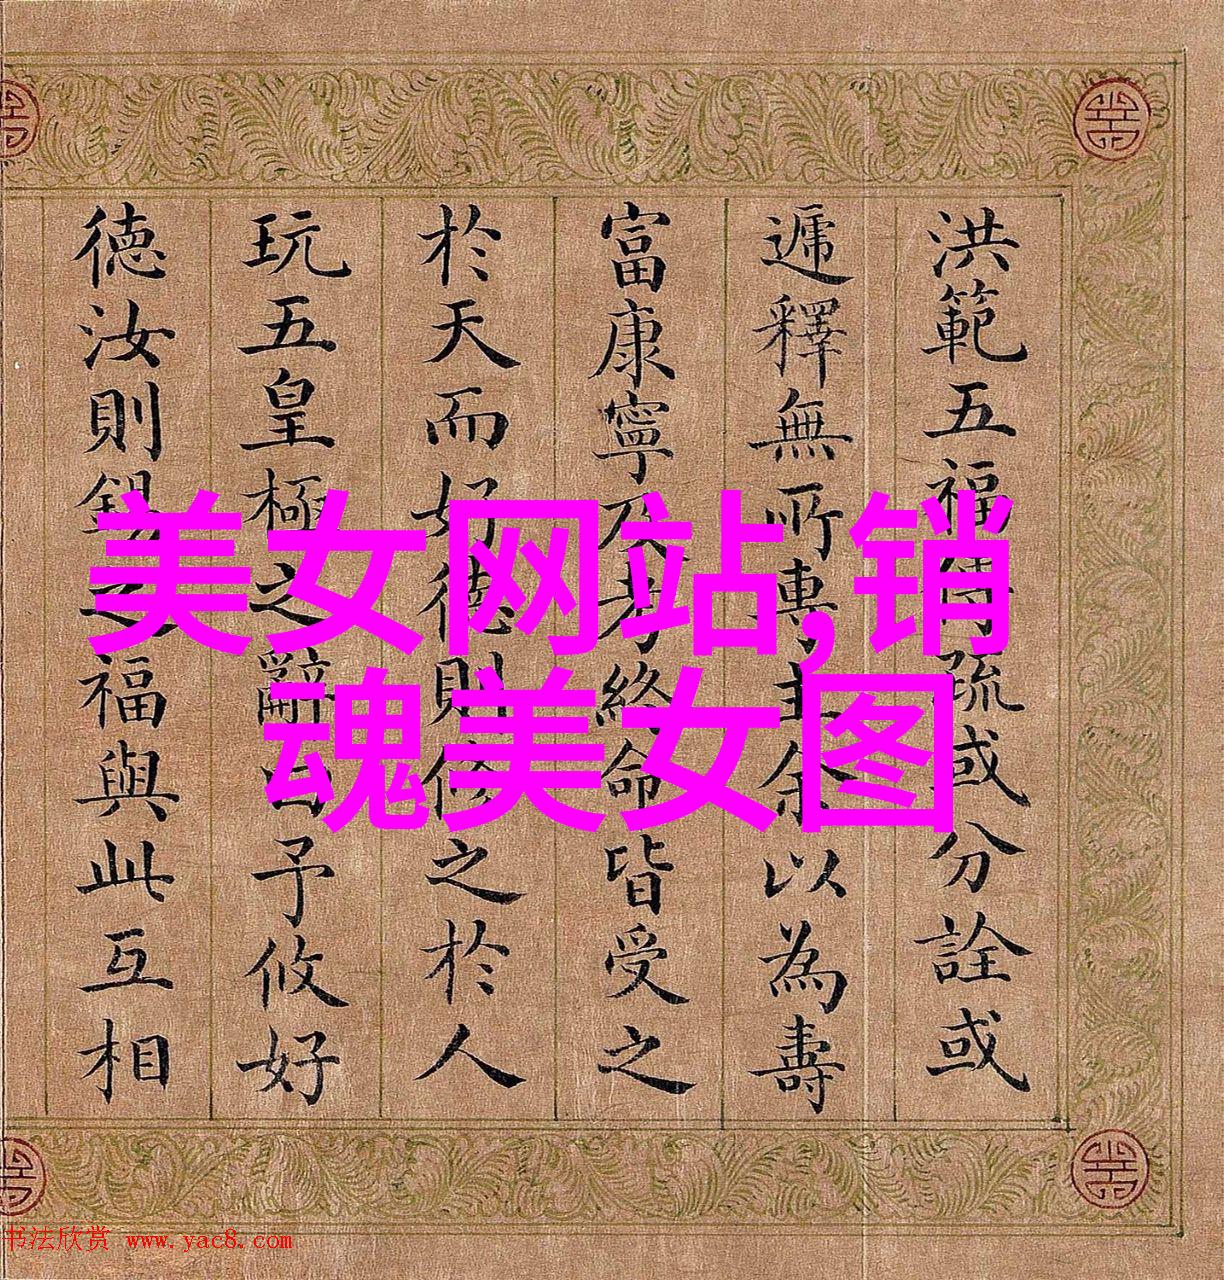 洪範五福傳疏或分詮或
遞釋無所專主余以為壽
富康寧及考終命皆受之
於天而好德則修之於人
玩五皇極之辭曰予攸好
德汝則錫之福與此互相
美女网站,销
魂美女图
书法欣赏 www.yac8.com